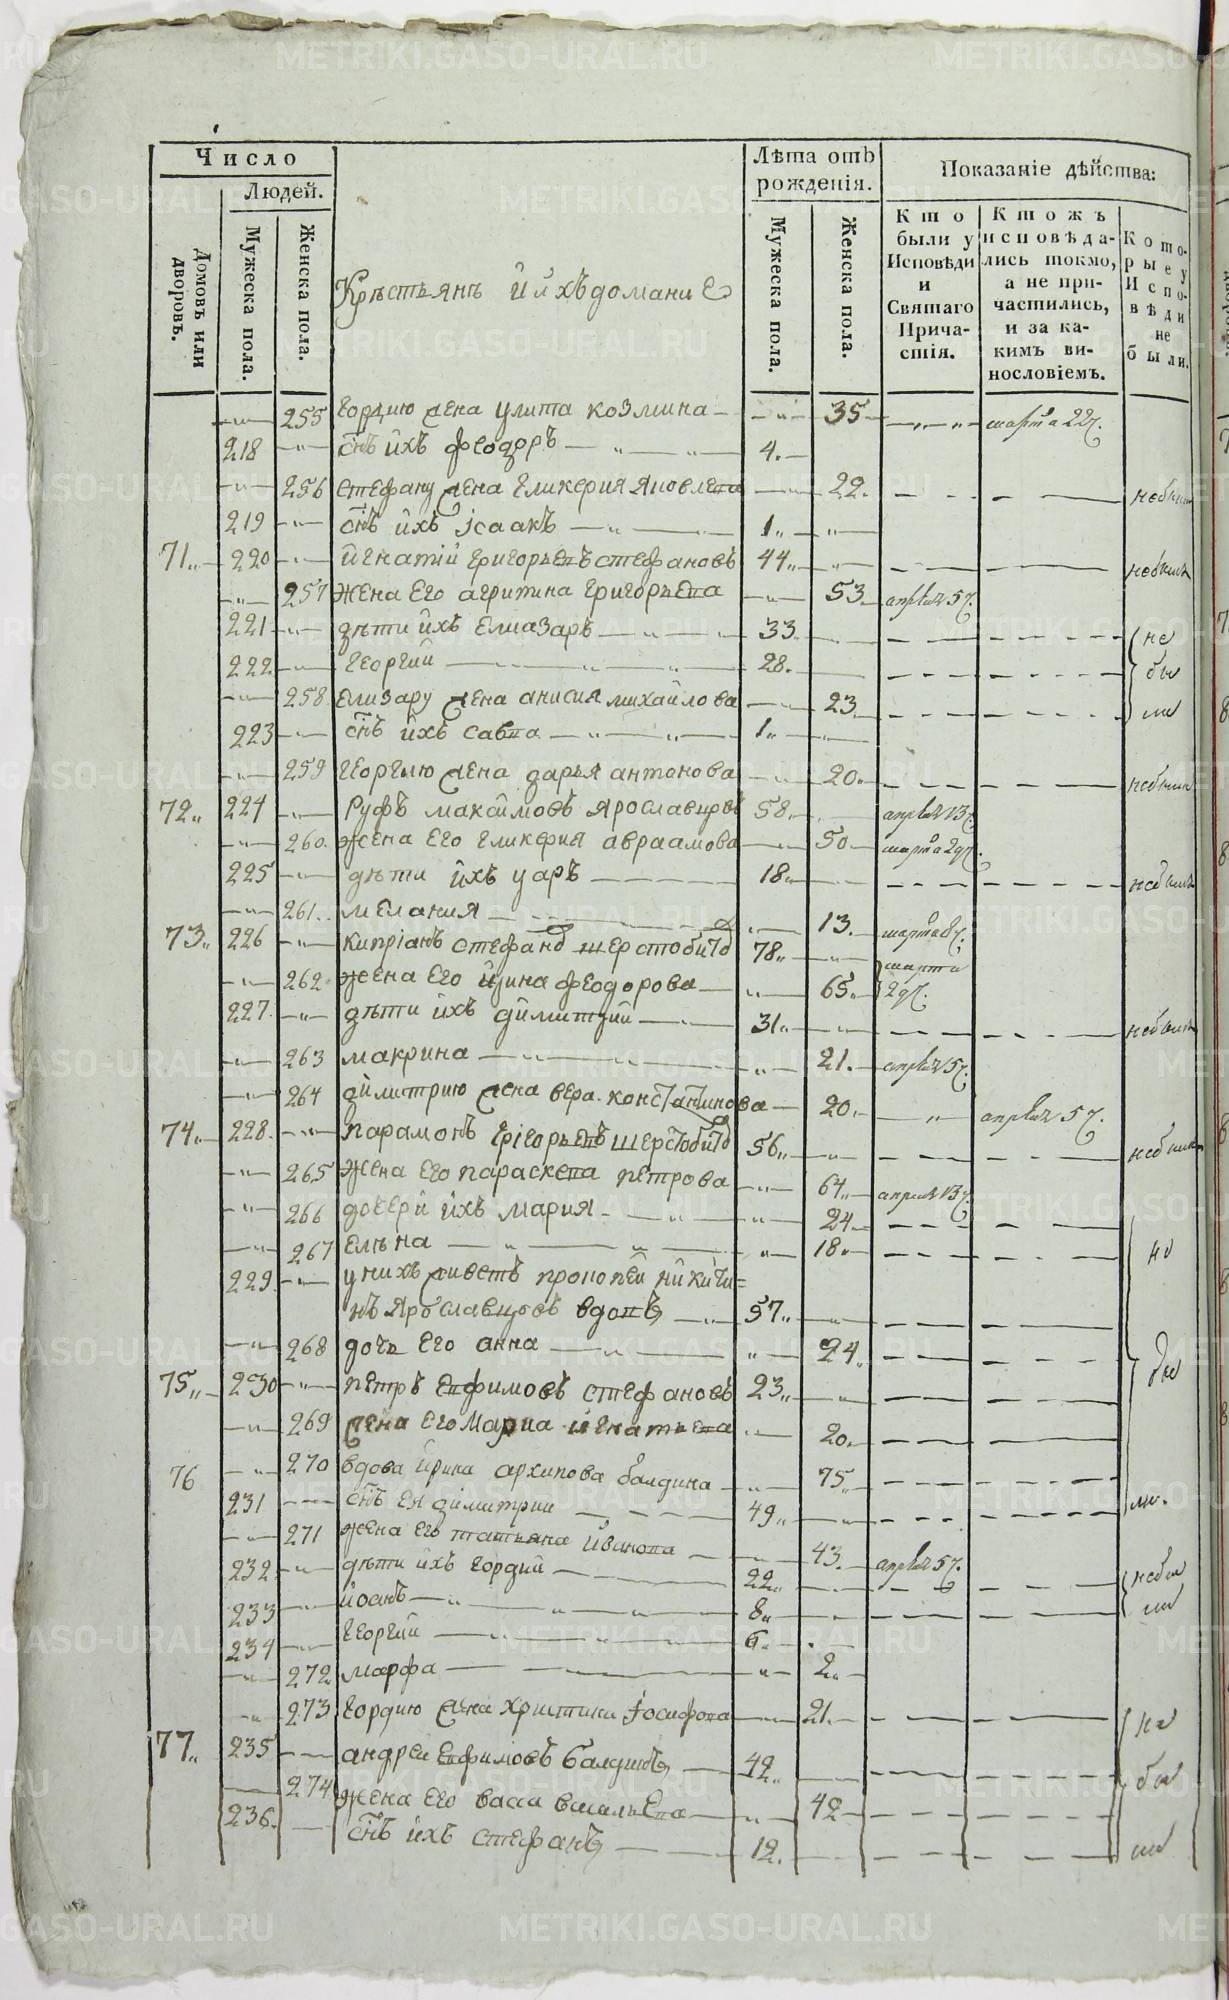 Число
Людей.
Домовъ или дворовъ.
Мужеска пола.
Женска пола.
Лѣта отъ рожденія.
Мужеска пола.
Женска пола.
Показаніе дѣйства:
Кто были у Исповѣди и Святаго Причастія.
Ктожъ исповѣдались токмо, а не причастились, и за какимъ винословіемъ.
Которые у Исповѣди не были.
Крѣстьянъ й йхъ домание
255 Гордию жена улита козмина 35 марта 22ч.
218 сн҃ъ йхъ феодоръ 4.
256 стефану жена гликерия яковлева 22. небыли
219 сн҃ъ йхъ Јсаакъ 1
71 220 йгнатий григорьевъ стефановъ 44 небыли
257 жена его агрипина григорьева 53 апреля 5ч.
221 дѣти йхъ елиазаръ 33 не
222 георгий 28. бы
258 елизару жена анисия михайлова 23 ли
223 сн҃ъ йхъ савва 1
259 георгию жена дарья антонова 20 небыли
72 224 Руфъ максимовъ Ярославцовъ 58 апреля 13ч.
260 жена его гликерия авраамова 50 марта 29ч.
225 дѣти йхъ уаръ 18 небыли
261 мелания 13. марта 8ч.
73 226 кипріанъ стефановъ шерстобитовъ 78 марта
262 жена его йрина феодорова 65 29ч.
227 дѣти йхъ димитрий 31 небыли
263 макрина 21. апреля 5ч.
264 димитрию жена вера константинова 20 апреля 5ч.
74 228 парамонъ григорьевъ шерстобитовъ 56 небыли
265 жена его параскева петрова 64 апреля 13ч.
266 дочери йхъ мария 24
267 елѣна 18 не
229 у нихъ живетъ прокопей никити=
нъ Ярославцовъ вдовъ 57
268 дочь его анна 24
75 230 петръ евфимовъ стефановъ 23 бы
269 жена его Мариа игнатьева 20
76 270 вдова йрина архипова балдина 75
231 сн҃ъ ея димитрии 49 ли.
271 жена его татьяна йванова 43. апреля 5ч.
232 дѣти йхъ гордий 22 небы
233 йоанъ 8 ли
234 георгий 6
272 марфа 2
273 гордию жена христина Јосифова 21 не
77 235 андрей евфимовъ балдинъ 42 бы
274 жена его васса васильева 42
236. сн҃ъ йхъ стефанъ 12. ли
METRIKI.GASO-URAL.RU